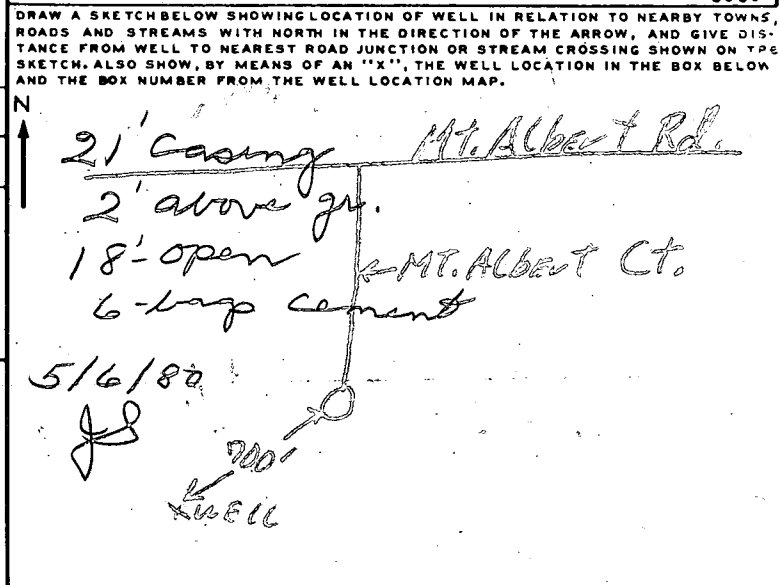 DRAW A SKETCH BELOW SHOWING LOCATION OF WELL IN RELATION TO NEARBY TOWNS,
ROADS AND STREAMS WITH NORTH IN THE DIRECTION OF THE ARROW, AND GIVE DIS-
TANCE FROM WELL TO NEAREST ROAD JUNCTION OR STREAM CROSSING SHOWN ON THE
SKETCH. ALSO SHOW, BY MEANS OF AN "X", THE WELL LOCATION IN THE BOX BELOW
AND THE BOX NUMBER FROM THE WELL LOCATION MAP.
N
21' Casing
Mt. Albert Rd.
2' above gr.
18'-open
MT. Albert Ct.
6-bags cement
5/6/80
JS
700'
X WELL